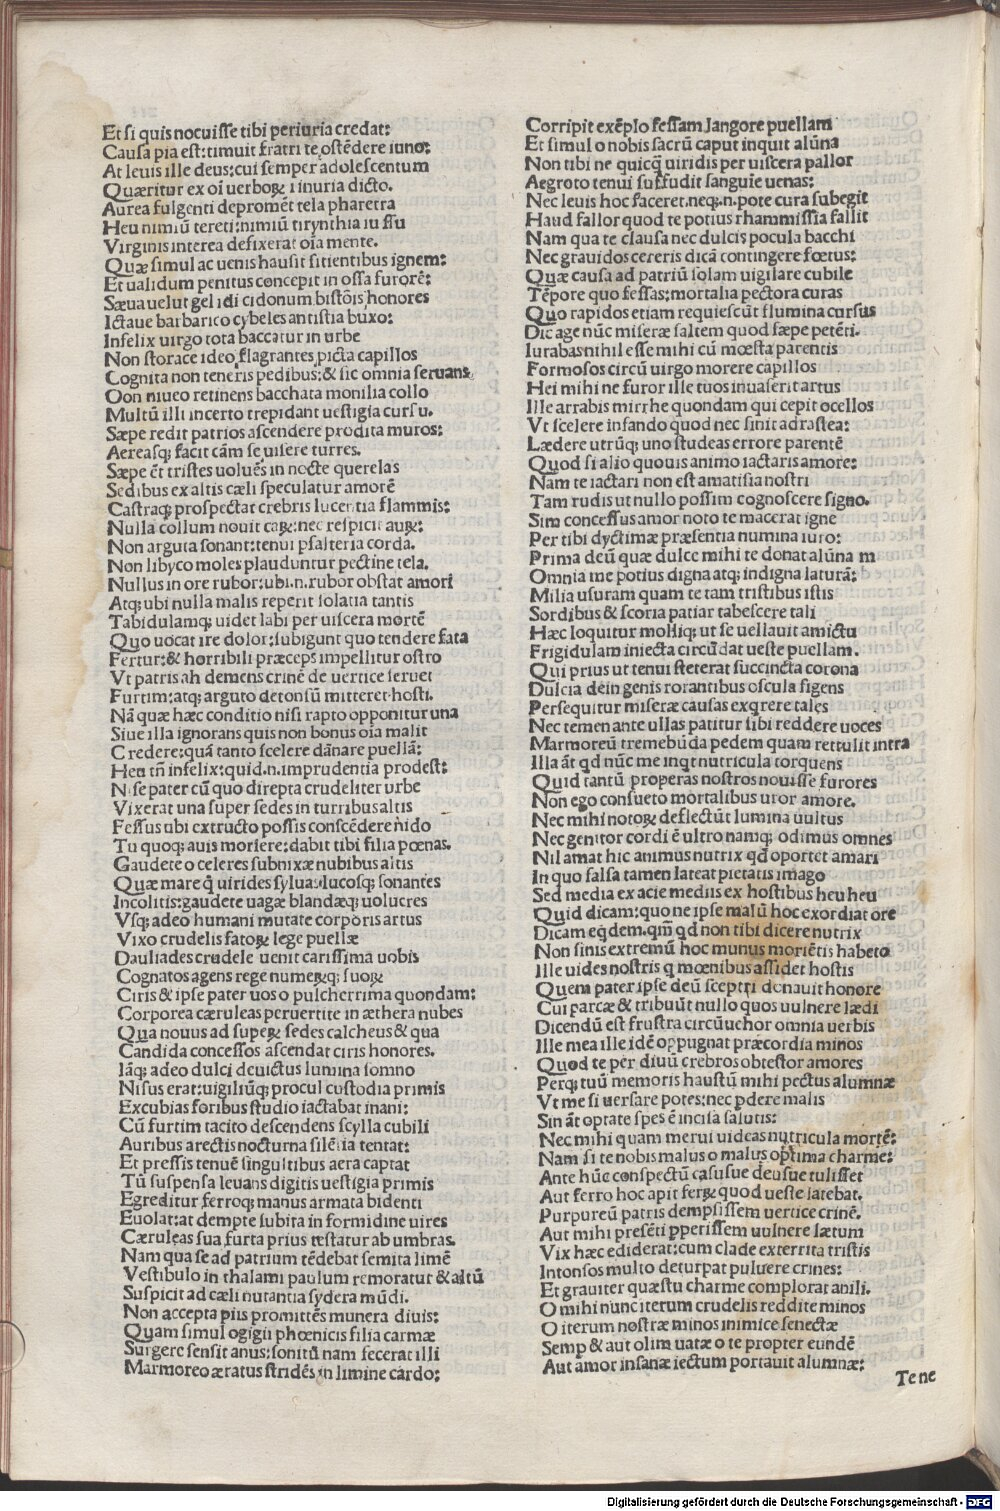 Et si quis nocuisse tibi periuria credat:
Causa pia est: timuit fratri te ostēdere iuno:
At leuis ille deus: cui semper adolescentum
Quæritur ex oī uerboꝝ iniuria dicto.
Aurea fulgenti depromēt tela pharetra
Heu nimiū tereti: nimiū tirynthia iussu
Virginis interea defixerat oīa mente.
Quæ simul ac uenis hausit sitientibus ignem:
Et ualidum penitus concepit in ossa furorē:
Sæua uelut gelidi cidonum bistōis honores
Ictaue barbarico cybeles antistia buxo:
Infelix uirgo tota baccatur in urbe
Non storace ideo flagrantes picta capillos
Cognita non teneris pedibus: & sic omnia seruans
Oon niueo retinens bacchata monilia collo
Multū illi incerto trepidant uestigia cursu.
Sæpe redit patrios ascendere prodita muros:
Aereasqꝫ facit cām se uisere turres.
Sæpe ēt tristes uoluēs in nocte querelas
Sedibus ex altis cæli speculatur amorē
Castraqꝫ prospectat crebris lucentia flammis:
Nulla collum nouit caꝝ: nec respicit auꝝ:
Non arguta sonant: tenui psalteria corda.
Non libyco moles plauduntur pectine tela.
Nullus in ore rubor: ubi.n. rubor obstat amori
Atqꝫ ubi nulla malis reperit solatia tantis
Tabidulamqꝫ uidet labi per uiscera mortē
Quo uocat ire dolor: subigunt quo tendere fata
Fertur: & horribili præceps impellitur ostro
Vt patris ah demens crinē de uertice seruet
Furtim: atqꝫ arguto detonsū mitteret hosti.
Nā quæ hæc conditio nisi rapto opponitur una
Siue illa ignorans quis non bonus oīa malit
Credere: quā tanto scelere dānare puellā:
Heu tn̄ infelix: quid.n. imprudentia prodest:
Nise pater cū quo direpta crudeliter urbe
Vixerat una super sedes in turribus altis
Fessus ubi extructo possis conscēdere nido
Tu quoqꝫ auis moriere: dabit tibi filia pœnas.
Gaudete o celeres subnixæ nubibus altis
Quæ mare q̄ uirides syluas lucosqꝫ sonantes
Incolitis: gaudete uagæ blandæqꝫ uolucres
Vsqꝫ adeo humani mutate corporis artus
Vixo crudelis fatoꝝ lege puellæ
Dauliades crudele uenit carissima uobis
Cognatos agens rege numeꝝqꝫ suoꝝ
Ciris & ipse pater uos o pulcherrima quondam:
Corporea cæruleas peruertite in æthera nubes
Qua nouus ad supeꝝ sedes calcheus & qua
Candida concessos ascendat ciris honores.
Iāqꝫ adeo dulci deuictus lumina somno
Nisus erat: uigiliūqꝫ procul custodia primis
Excubias foribus studio iactabat inani:
Cū furtim tacito descendens scylla cubili
Auribus arectis nocturna silētia tentat:
Et pressis tenuē singultibus aera captat
Tū suspensa leuans digitis uestigia primis
Egreditur ferroqꝫ manus armata bidenti
Euolat: at dempte subita in formidine uires
Cæruleas sua furta prius testatur ab umbras.
Nam qua se ad patrium tēdebat semita limē
Vestibulo in thalami paulum remoratur & altū
Suspicit ad cæli nutantia sydera mūdi.
Non accepta piis promittēs munera diuis:
Quam simul ogigii phœnicis filia carmæ
Surgere sensit anus: sonitū nam fecerat illi
Marmoreo æratus stridēs in limine cardo:
Corripit exēplo fessam langore puellam
Et simul o nobis sacrū caput inquit alūna
Non tibi ne quicq̄ uiridis per uiscera pallor
Aegroto tenui suffudit sanguie uenas:
Nec leuis hoc faceret. neqꝫ.n. pote cura subegit
Haud fallor quod te potius rhammissia fallit
Nam qua te clausa nec dulcis pocula bacchi
Nec grauidos cereris dicā contingere fœtus:
Quæ causa ad patriū solam uigilare cubile
Tēpore quo fessas: mortalia pectora curas
Quo rapidos etiam requiescūt flumina cursus
Dic age nūc miseræ saltem quod sæpe petēti.
Iurabas nihil esse mihi cū mœsta parentis
Formosos circū uirgo morere capillos
Hei mihi ne furor ille tuos inuaserit artus
Ille arrabis mirrhe quondam qui cepit ocellos
Vt scelere infando quod nec sinit adrastea:
Lædere utrūqꝫ uno studeas errore parentē
Quod si alio quouis animo iactaris amore:
Nam te iactari non est amatisia nostri
Tam rudis ut nullo possim cognoscere signo.
Sim concessus amor noto te macerat igne
Per tibi dyctimæ præsentia numina iuro:
Prima deū quæ dulce mihi te donat alūna m
Omnia me potius digna atqꝫ indigna laturā:
Milia usuram quam te tam tristibus istis
Sordibus & scoria patiar tabescere tali
Hæc loquitur molliqꝫ ut se uellauit amictu
Frigidulam iniecta circūdat ueste puellam.
Qui prius ut tenui steterat succincta corona
Dulcia dein genis rorantibus oscula figens
Persequitur miseræ causas exqrere tales
Nec temen ante ullas patitur sibi reddere uoces
Marmoreū tremebūda pedem quam rettulit intra
Illa āt qd nūc me inqt nutricula torquens
Quid tantū properas nostros nouisse furores
Non ego consueto mortalibus uror amore.
Nec mihi notoꝝ deflectūt lumina uultus
Nec genitor cordi ē ultro namqꝫ odimus omnes
Nil amat hic animus nutrix qd oportet amari
In quo falsa tamen lateat pietatis imago
Sed media ex acie mediis ex hostibus heu heu
Quid dicam: quo ne ipse malū hoc exordiar ore
Dicam eqdem. qm̄ qd non tibi dicere nutrix
Non sinis extremū hoc munus moriētis habeto
Ille uides nostris q mœnibus assidet hostis
Quem pater ipse deū sceptri donauit honore
Cui parcæ & tribuūt nullo quos uulnere lædi
Dicendū est frustra circūuehor omnia uerbis
Ille mea ille idē oppugnat præcordia minos
Quod te per diuū crebros obtestor amores
Perqꝫ tuū memoris haustū mihi pectus alumnæ
Vt me si uersare potes: nec pdere malis
Sin āt optate spes ē incisa salutis:
Nec mihi quam merui uideas nutricula mortē:
Nam si te nobis malus o malus optima charme:
Ante hūc conspectū casusue deusue tulisset
Aut ferro hoc apit feꝝ quod ueste latebat.
Purpureū patris dempsissem uertice crinē.
Aut mihi presēti pperissem uulnere lætum
Vix hæc ediderat: cum clade exterrita tristis
Intonsos multo deturpat puluere crines:
Et grauiter quæstu charme complorat anili.
O mihi nunc iterum crudelis reddite minos
O iterum nostræ minos inimice senectæ
Semp & aut olim uatæ o te propter eundē
Aut amor insanæ iectum portauit alumnæ:
Te ne
Digitalisierung gefördert durch die Deutsche Forschungsgemeinschaft - DFG